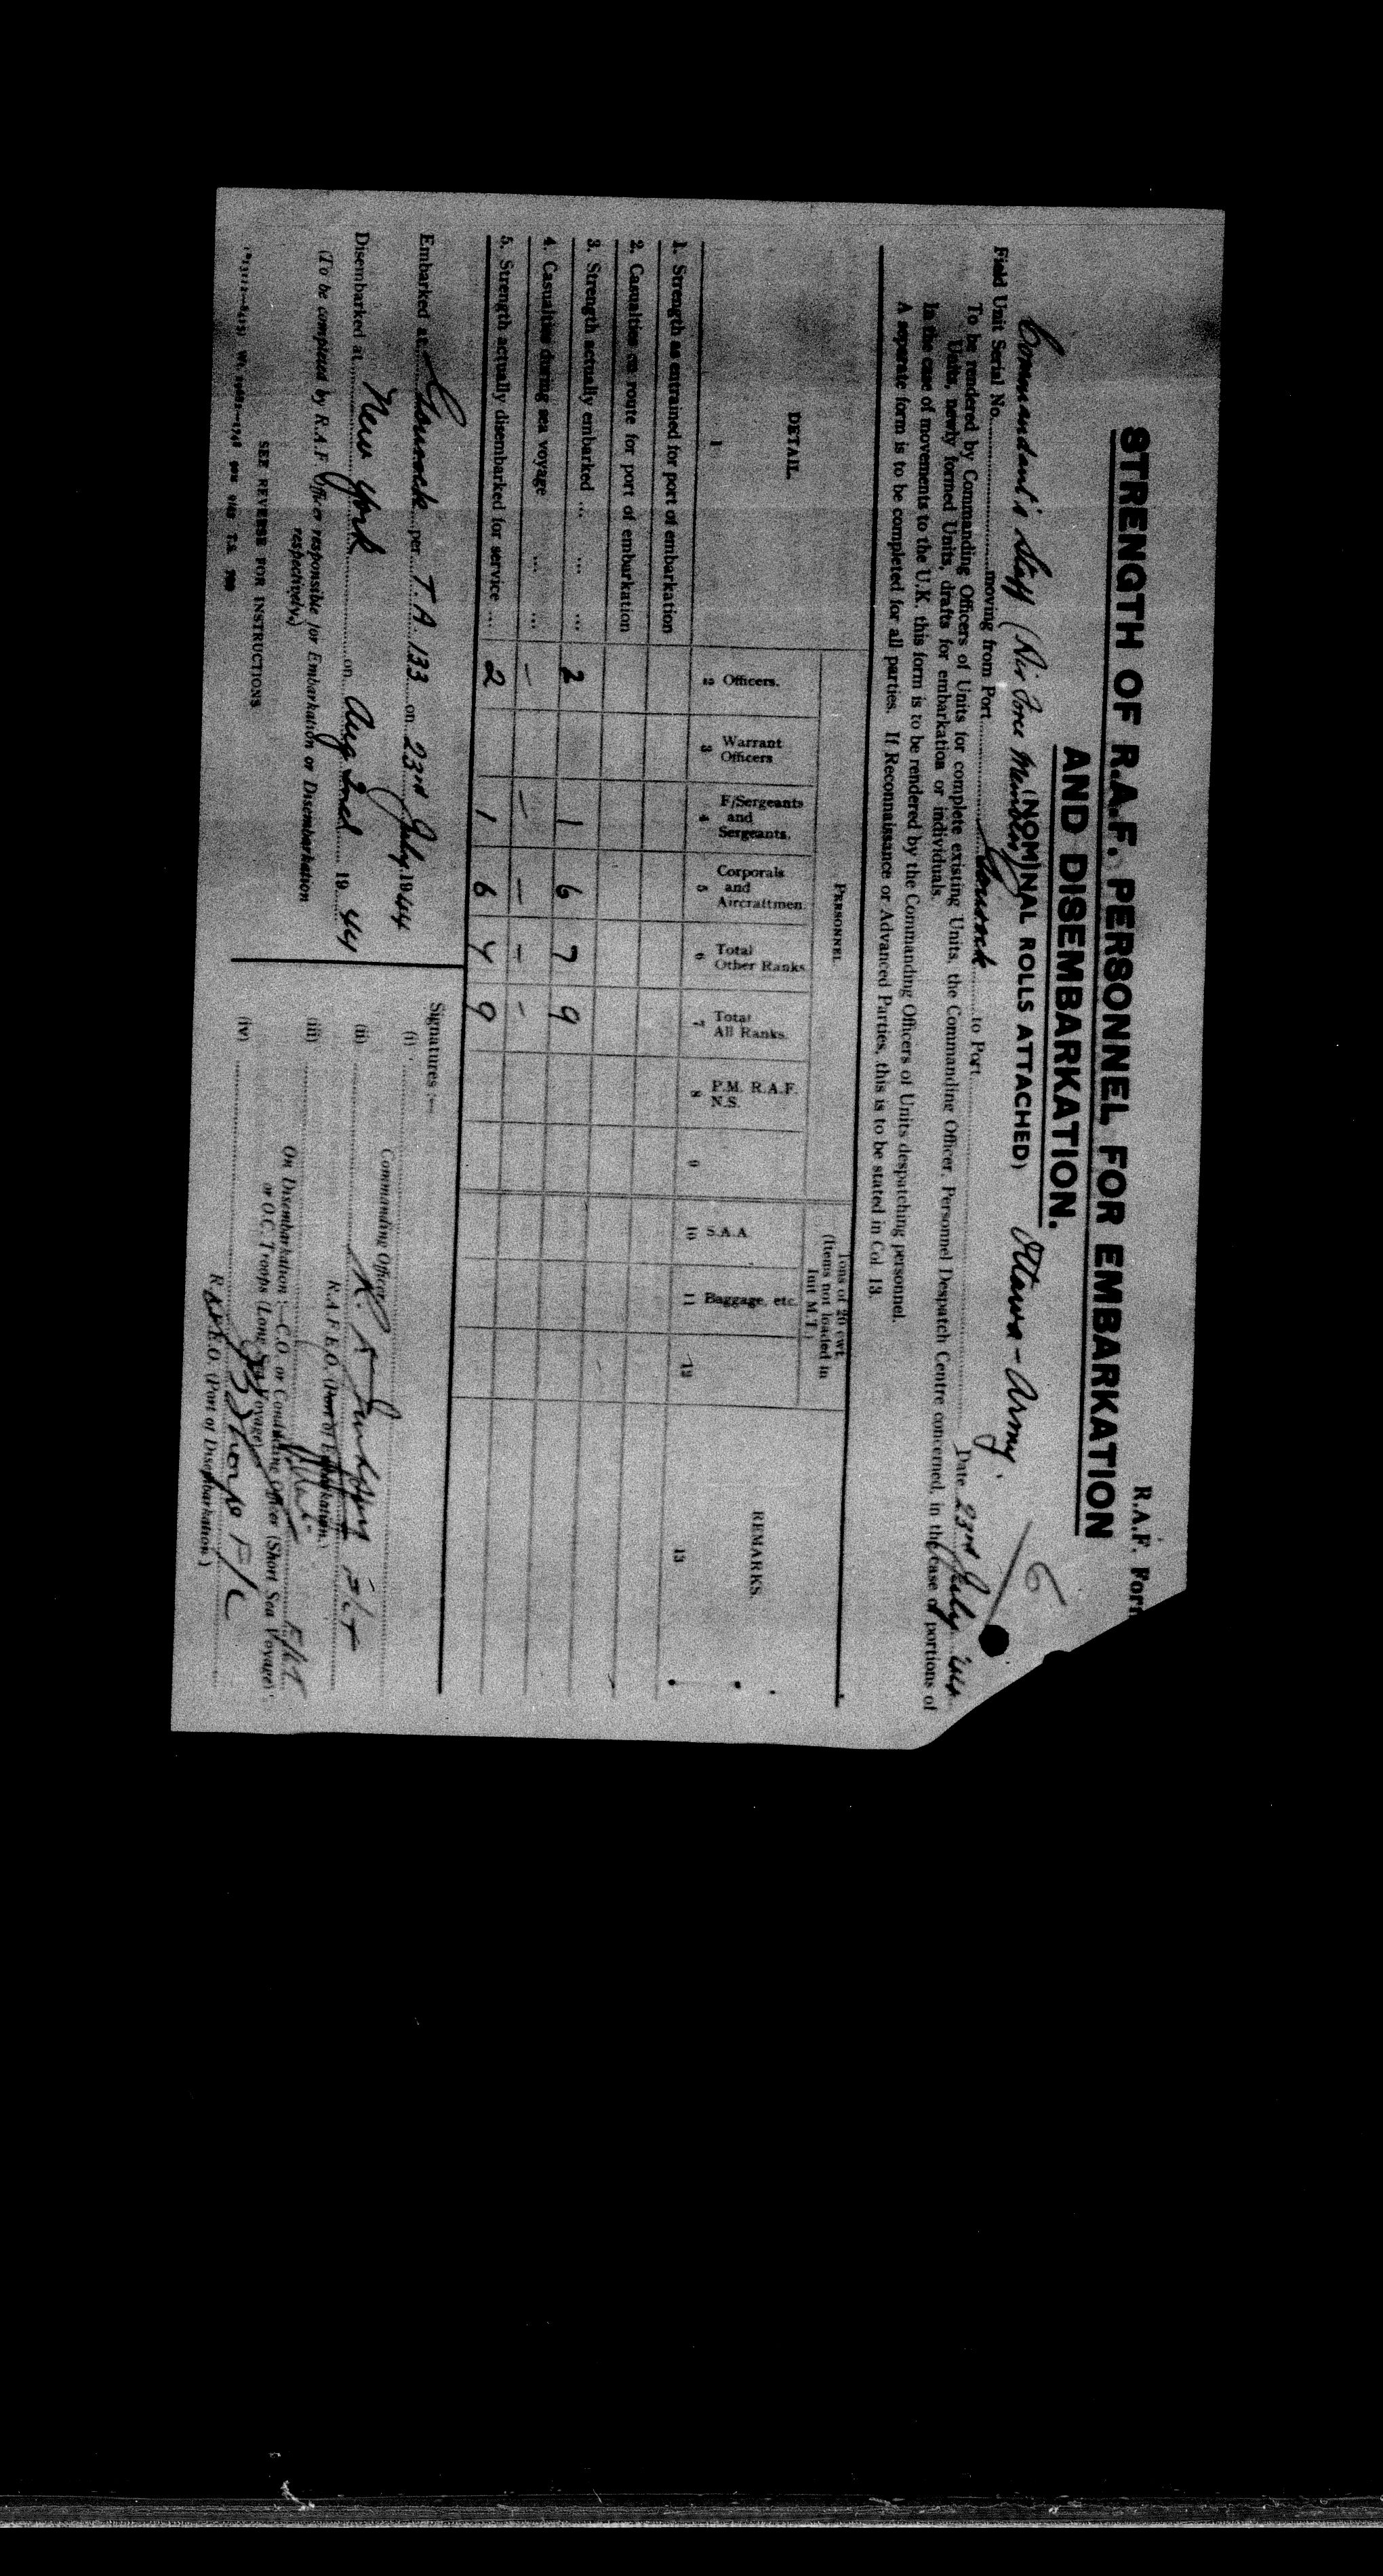 R.A.F. For
STRENGTH OF R.A.F. PERSONNEL FOR EMBARKATION
AND DISEMBARKATION.
(NOMINAL ROLLS ATTACHED)
Commandant's Staff (Air Force Members) Ottawa - Army. 6
Field Unit Serial No. moving from Port Gourock to Port Date 23rd July 1944
To be rendered by Commanding Officers of Units for complete existing Units, the Commanding Officer, Personnel Despatch Centre concerned, in the case of portions of
Units, newly formed Units, drafts for embarkation or individuals.
In the case of movements to the U.K. this form is to be rendered by the Commanding Officers of Units despatching personnel.
A separate form is to be completed for all parties. If Reconnaissance or Advanced Parties, this is to be stated in Col. 13.
DETAIL. PERSONNEL Tons of 20 cwt. (Items not loaded in Unit M.T.) REMARKS.
Officers. Warrant Officers F/Sergeants and Sergeants. Corporals and Aircraftmen. Total Other Ranks Total All Ranks. P.M. R.A.F. N.S. S.A.A. Baggage, etc.
1 2 3 4 5 6 7 8 9 10 11 12 13
1. Strength as entrained for port of embarkation
2. Casualties en route for port of embarkation
3. Strength actually embarked ... ... ... 2 1 6 7 9
4. Casualties during sea voyage ... ... - - - - -
5. Strength actually disembarked for service ... 2 1 6 7 9
Embarked at Gourock per T.A. 133 on 23rd July 1944
Disembarked at New York on Aug 2nd 19 44
(To be completed by R.A.F. Officer responsible for Embarkation or Disembarkation
respectively.)
SEE REVERSE FOR INSTRUCTIONS
Signatures :—
(i)
Commanding Officer
(ii) F/Lt
R.A.F.E.O. (Port of Embarkation.)
(iii) F/Lt
On Disembarkation :—C.O. or Conducting Officer (Short Sea Voyage)
or O.C. Troops (Long Sea Voyage)
(iv)
R.A.F.E.O. (Port of Disembarkation)